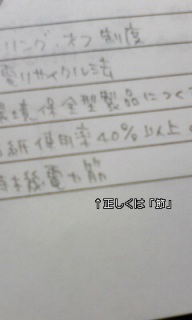 リング・オフ制度
電リサイクル法
環境保全型製品につく
紙使用率40%以上
待機電力筋
↑正しくは「節」